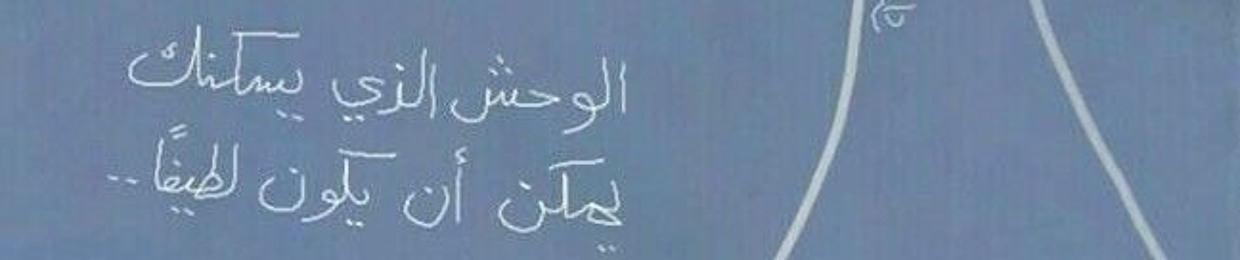 الوحش الذي يسكنك
يمكن أن يكون لطيفًا..